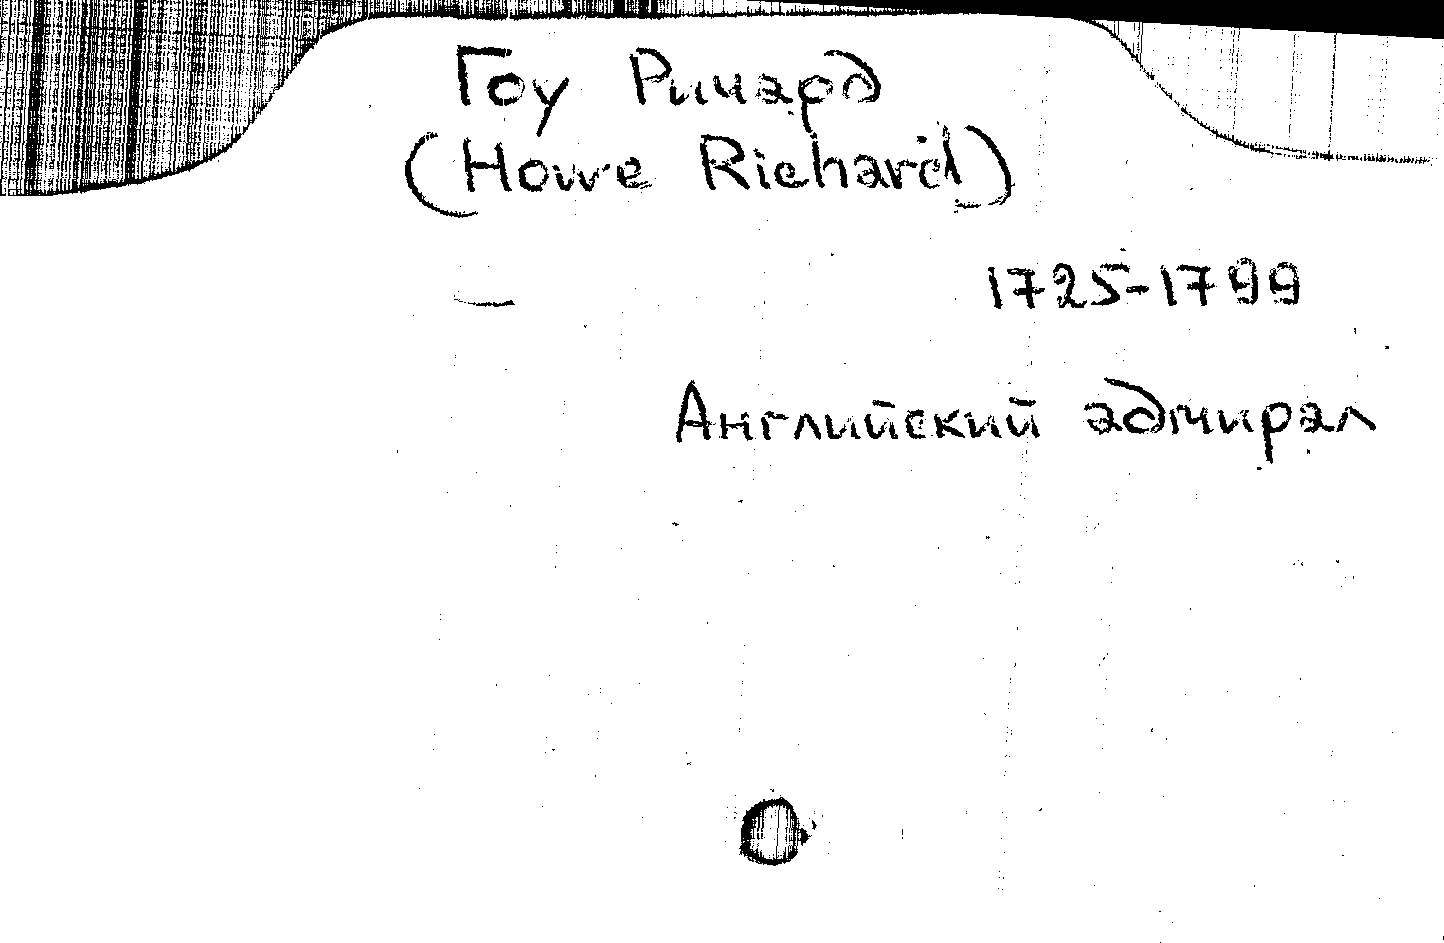 Гоу Ричард
(Howe Richard)
1725-1799
Английский адмирал